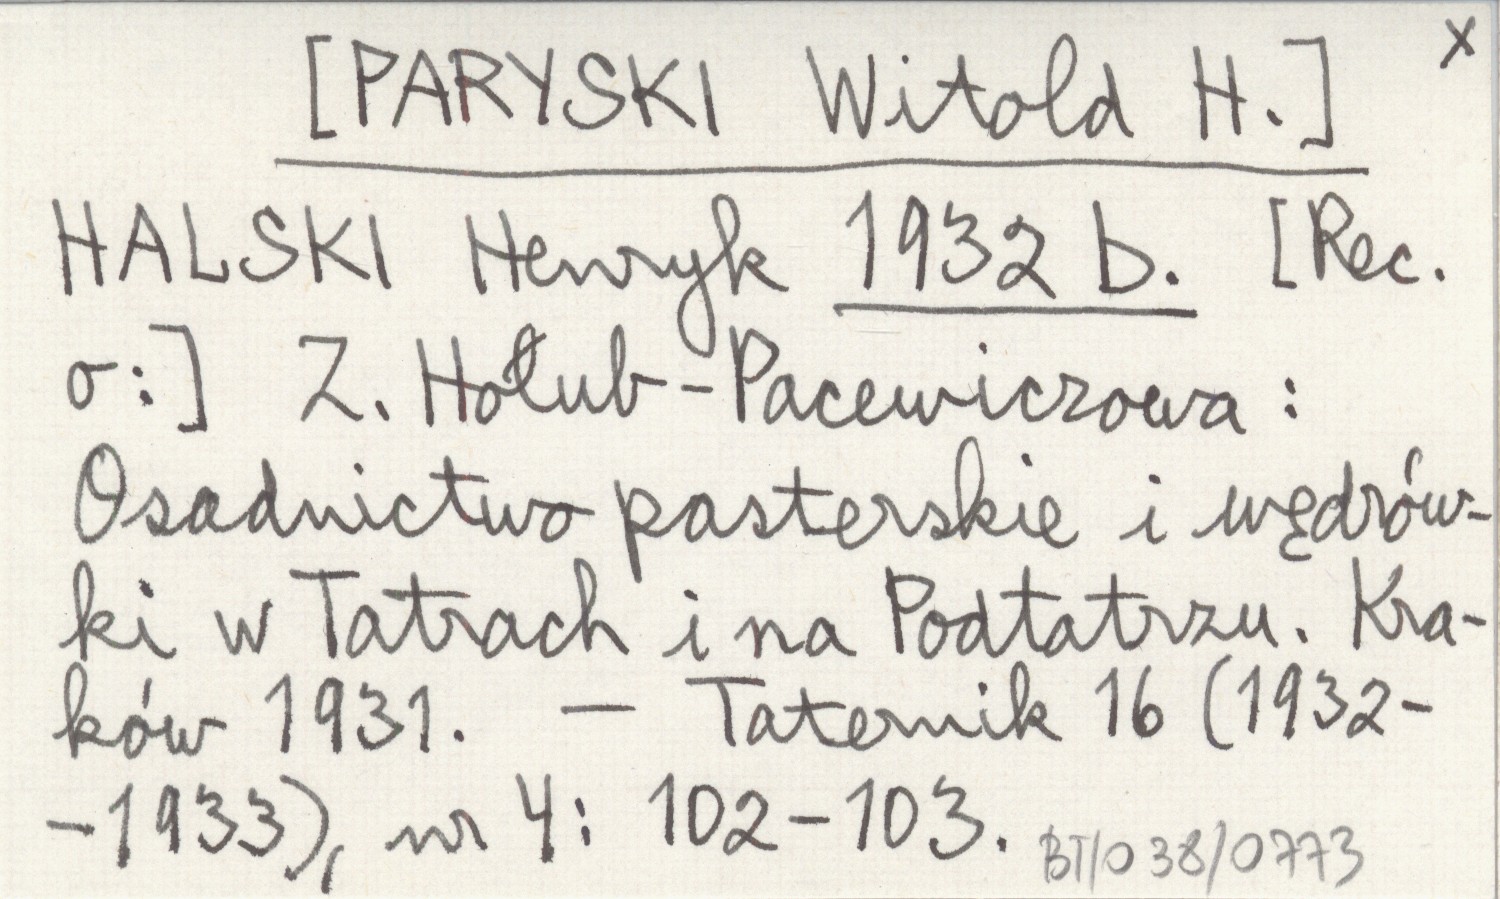 x
[PARYSKI Witold H.]
HALSKI Henryk 1932 b. [Rec.
o:] Z. Hołub-Pacewiczowa:
Osadnictwo pasterskie i wędrów-
ki w Tatrach i na Podtatrzu. Kra-
ków 1931. — Taternik 16 (1932-
-1933), nr 4: 102-103.
BT/038/0773